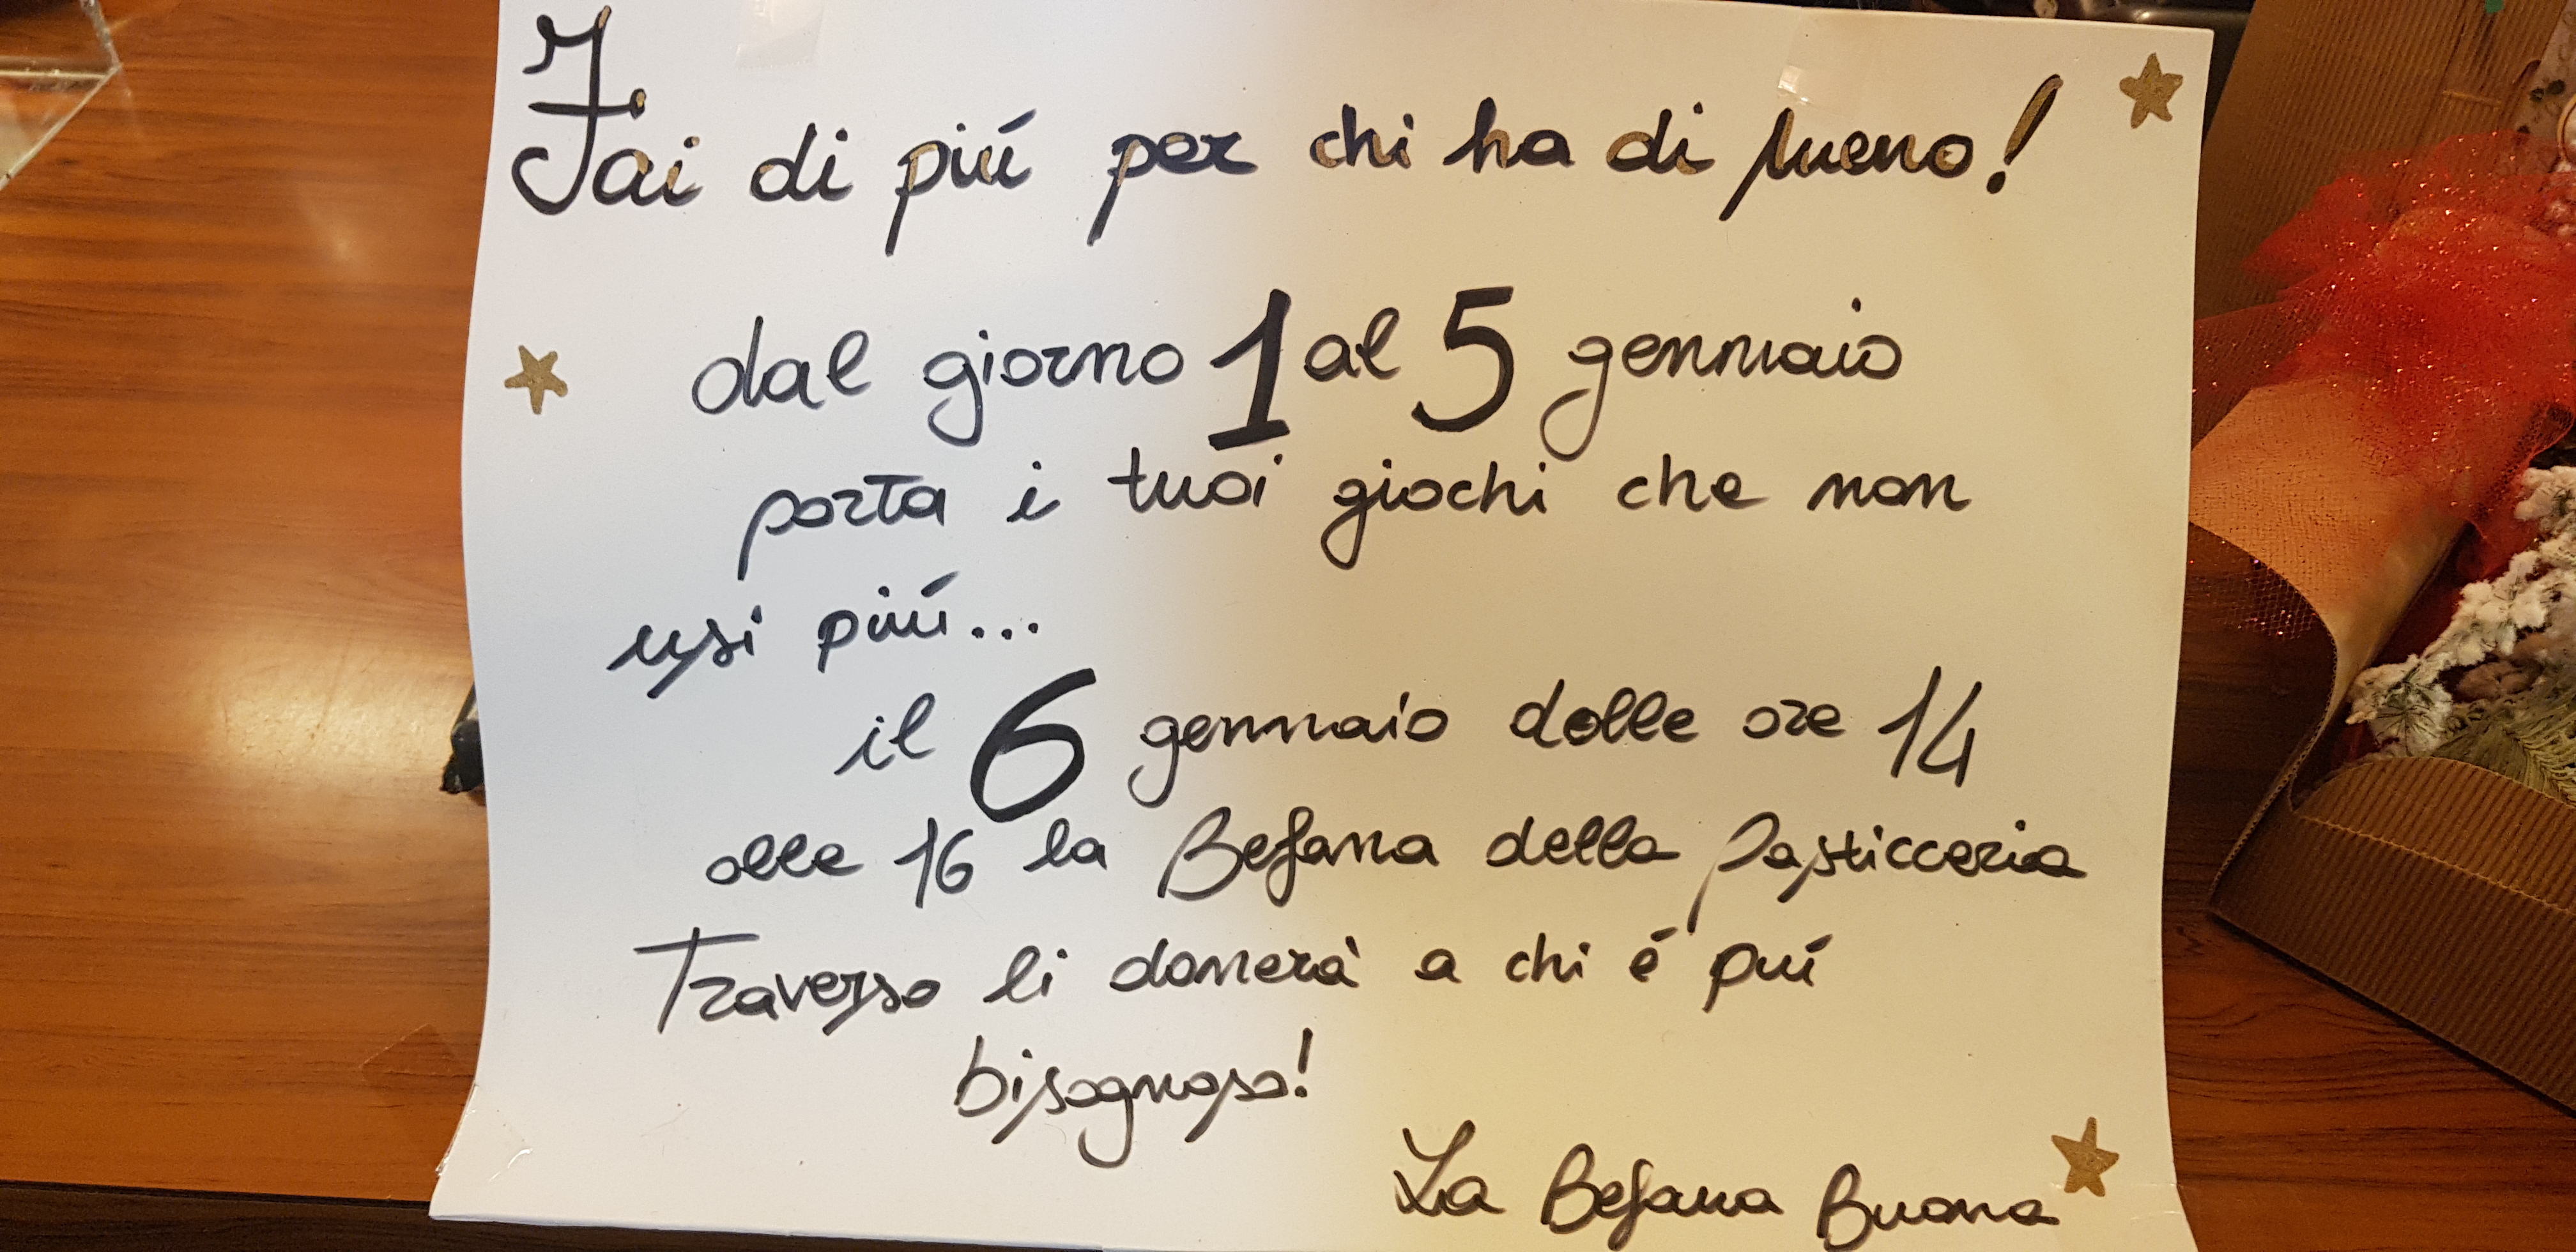 Fai di piú per chi ha di meno!
dal giorno 1 al 5 gennaio
porta i tuoi giochi che non
usi piú...
il 6 gennaio dalle ore 14
alle 16 la Befana della Pasticceria
Traverso li donerà a chi é piú
bisognoso!
La Befana Buona